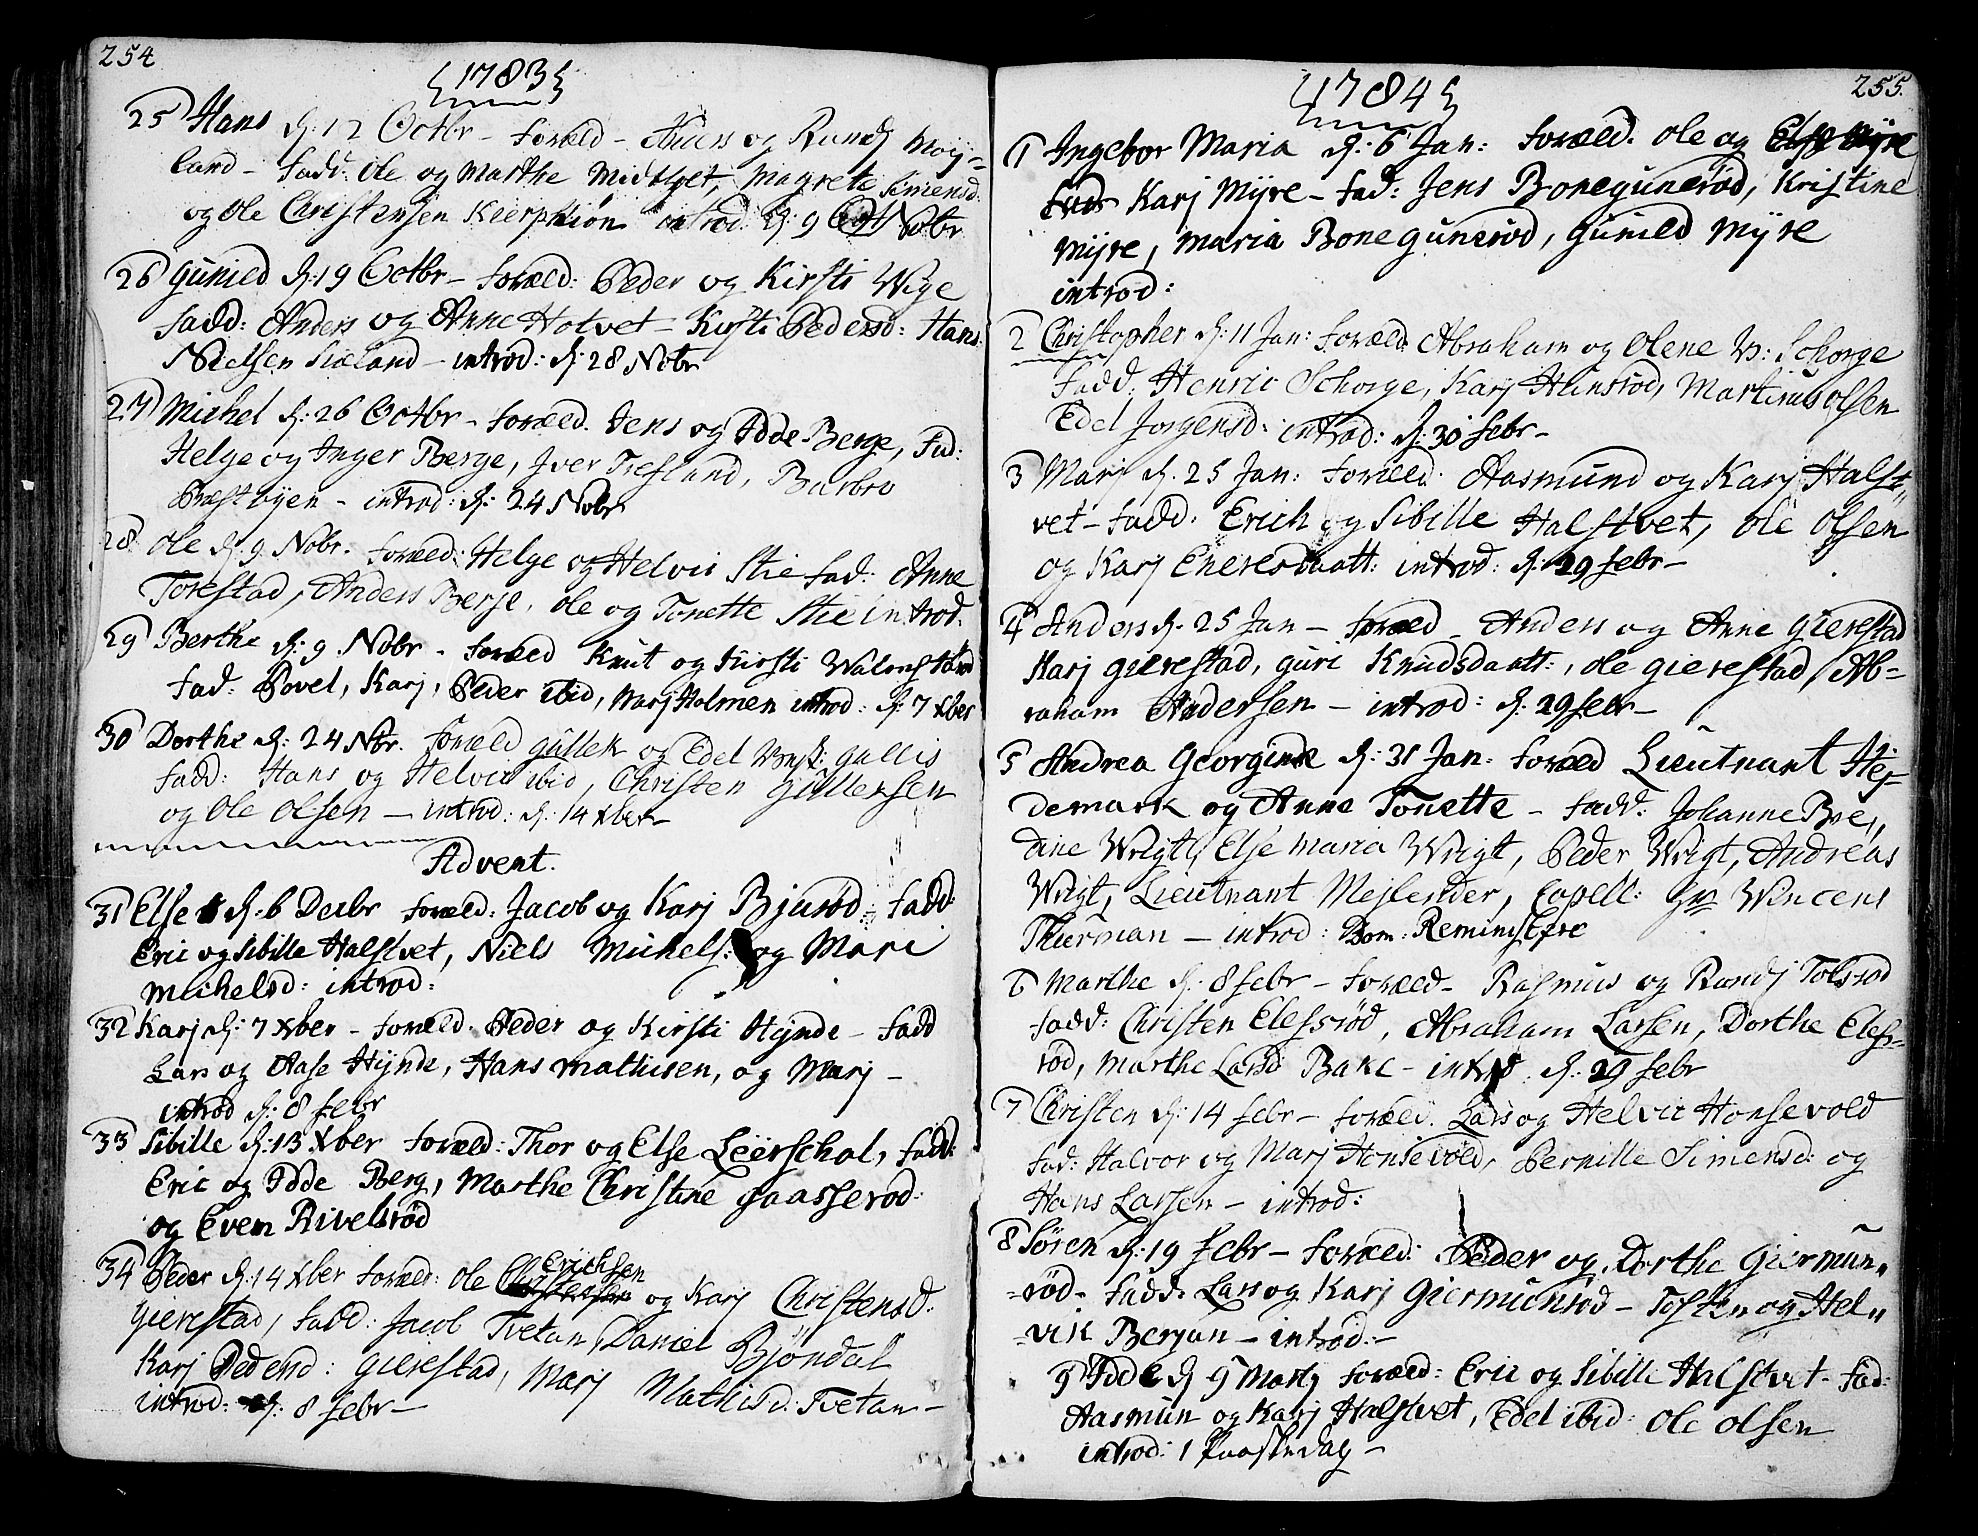 254
1783
25 Hans d: 12 Octbr - foræld - og Rundj Moy-
land - fadd. Ole og Marthe Midtlyet, Magrete Simensd:
og Ole Christensen introd. d: 9 Nobr
26 Gunild d: 19 Octbr - foræld: Peder og Kirsti Wige
fadd: Anders og Anne Hotvet - Kirsti Pedersd: Hans
Nielsen Siæland - introd: d: 28 Nobr
27 Michel d: 26 Octbr - foræld. Jens og Idde Berge, fad:
Helge og Inger Berge, Iver Tresland, Barbro
introd: d: 24 Nobr
28 Ole d. 9. Nobr. foræld: Helge og Helvic Stie fad: Anne
Torestad, Anders Berge, Ole og Tonette Stie introd.
29 Berthe d: 9. Nobr - foræld Knut og Kirsti
fad: Povel, Karj, Peder ibid, Marj Holmen introd: d: 7 Xber
30 Dorthe d: 24 Nbr. foræld Gullek og Edel Gullis
fadd: Hans og Helvic ibid, Christen Gullersen
og Ole Olsen - introd: d: 14 Xber
Advent.
31 Else d: 6 Decbr foræld: Jacob og Karj Bjurød: fadd:
Eric og Sibille Halstvet, Niels Michels: og Mari
Michelsd: introd:
32 Karj d: 7 Xber - foræld. Peder og Kirsti Hynde - fadd
Lars og Aase Hynde, Hans Mathisen, og Marj -
introd d: 8 febr
33 Sibille d: 13 Xber foræld: Thor og Else Leerschol, fadd:
Eric og Idde Berg, Marthe Christine Gaasserød:
og Even Rivelsrød
34 Peder d: 14 Xber foræld: Ole Erichsen og Karj Christensd:
Gierestad, fadd: Jacob Tvetan, Daniel Bjøndal
Karj Pedersd: Gierestad, Marj Mathisd: Tvetan -
introd: d: 8 febr -
255.
1784
1 Ingebor Maria d: 6 Jan: foræld. Ole og Else Myre
Karj Myre - fad: Jens Bonegunerød, Kristine
Myre, Maria Bonegunerød, Gunild Myre
introd:
2 Christopher d: 11 Jan: foræld. Abraham og Olene v: Schorge
fadd. Henric Schorge, Karj Hunsrød, Martinus Olsen
Edel Jorgensd: introd: d: 30 febr -
3 Marj d. 25 Jan: foræld. Aasmund og Karj Halst„
vet - fadd. Erich og Sibille Halstvet, Ole Olsen
og Karj Eneresdaatt: introd: d: 29 febr -
4 Anders d. 25 Jan - foræld - Anders og Anne Gierestad
Karj Gierestad, Guri Knudsdaatt:, Ole Gierestad, Ab-
raham Andersen - introd: d. 29 febr -
5 Andrea Georgine d: 31 Jan: foræld Lieutnant Hej-
demark og Anne Tonette - fadd: Johanne Bre„
dine Wrigt, Else Maria Wrigt, Peder Wrigt, Andreas
Wrigt, Lieutnant Mejlender, Capell: Hr Wincens
Thurman - introd: Dom: Reministere
6 Marthe d. 8 febr - foræld - Rasmus og Randj Tolsrød
fadd: Christen Elefsrød, Abraham Larsen, Dorthe Elefs-
rød, Marthe Larsd: Bake - introd. d: 29 febr
7 Christen d: 14 febr - foræld. Lars og Helvic Honsevold
fad: Halvor og Marj Honsevold, Pernille Simensd: og
Hans Larsen - introd:
8 Søren d: 19 febr - foræld: Peder og Dorthe Giermun„
-rød - fadd. Lars og Karj Giermundsrød - Tosten og Hel„
-vik Berjan - introd:-
9 Idde d 9 Marty foræld: Eric og Sibille Halstvet - fad:
Aasmun og Karj Halstvet, Edel ibid: Ole Olsen
introd: 1 Paaskedag -